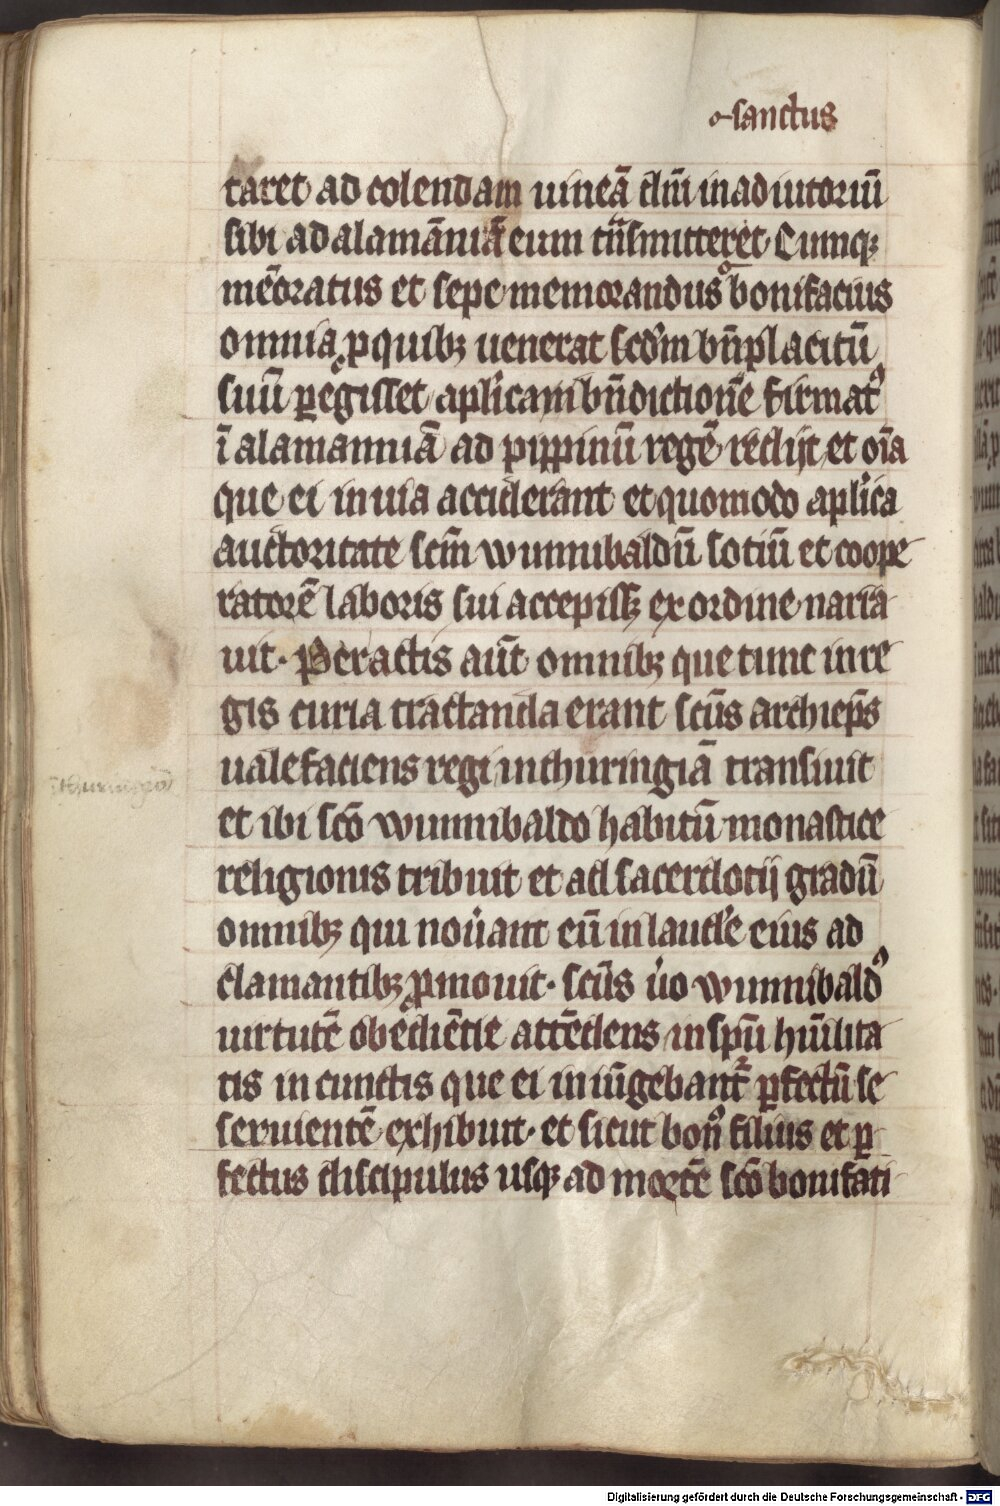 o-sanctus
taret ad colendam uineã dñi in adiutoriũ
sibi ad alamãniã eum tñsmitteret. Cumq;
mẽoratus et sepe memorandus bonifacius
omnia p quib; uenerat scdm bñplacitũ
suũ pegisset aplicam bñdictionẽ firmat9
ĩ alamanniã ad pippinũ regẽ rediit et oĩa
que ei in uia acciderant et quomodo aplica
auctoritate scm wunnibaldũ sotiũ et coope
ratorẽ laboris sui accepiss; ex ordine narra
uit. Peractis aũt omnib; que tunc in re
gis curia tractanda erant scũs archiep̃s
ualefaciens regi in thuringiã transiuit
thuringia
et ibi scõ wunnibaldo habitũ monastice
religionis tribuit et ad sacerdotij gradũ
omnib; qui nouant eũ in laude eius ad
clamantib; pmouit. scũs uo wunnibald9
uirtutẽ obediẽtie attẽdens in spũ hũilita
tis in cunctis que ei iniũgebant̃ pfectũ se
seruientẽ exhibuit. et sicut bon9 filius et p
fectus discipulus usq; ad mortẽ scõ bonifati
Digitalisierung gefördert durch die Deutsche Forschungsgemeinschaft - DFG